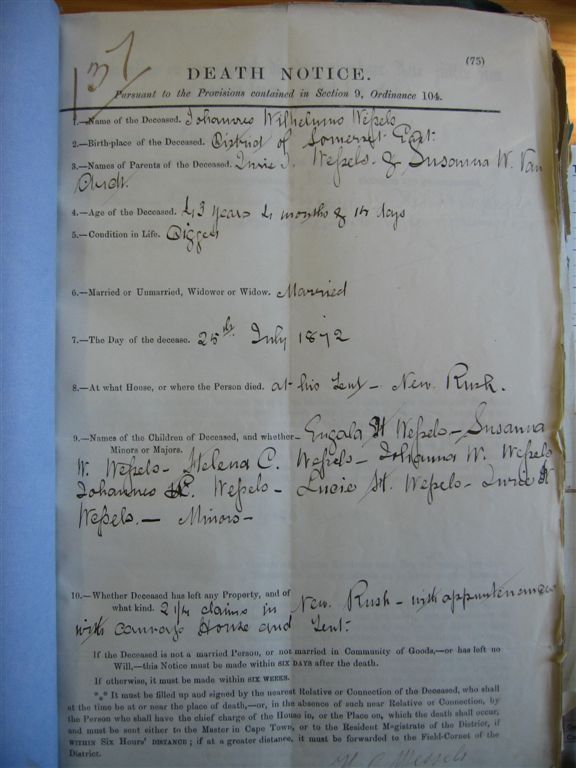 137
(75)
DEATH NOTICE.
Pursuant to the Provisions contained in Section 9, Ordinance 104.
1.—Name of the Deceased. Johannes Wilhelmus Weſsels
2.—Birth-place of the Deceased. District of Somerset East.
3.—Names of Parents of the Deceased. J. Weſsels & Susanna W. Van
Aardt.
4.—Age of the Deceased. 43 years 4 months & days
5.—Condition in Life. Digger
6.—Married or Unmarried, Widower or Widow. Married
7.—The Day of the decease. 25th July 1872
8.—At what House, or where the Person died. at his Tent – New Rush.
9.—Names of the Children of Deceased, and whether – Weſsels – Susanna
Minors or Majors.
W. Weſsels – Helena C. Weſsels – Johanna W. Weſsels
Johannes Weſsels – Lucie Weſsels –
Weſsels. – Minors –
10.—Whether Deceased has left any Property, and of
what kind. 2 1/4 claims in New Rush – with appurtenances
with canvas House and Tent.
If the Deceased is not a married Person, or not married in Community of Goods,—or has left no
Will,—this Notice must be made within SIX DAYS after the death.
If otherwise, it must be made within SIX WEEKS.
*** It must be filled up and signed by the nearest Relative or Connection of the Deceased, who shall
at the time be at or near the place of death,—or, in the absence of such near Relative or Connection, by
the Person who shall have the chief charge of the House in, or the Place on, which the death shall occur,
and must be sent either to the Master in Cape Town, or to the Resident Magistrate of the District, if
WITHIN SIX HOURS' DISTANCE; if at a greater distance, it must be forwarded to the Field-Cornet of the
District.